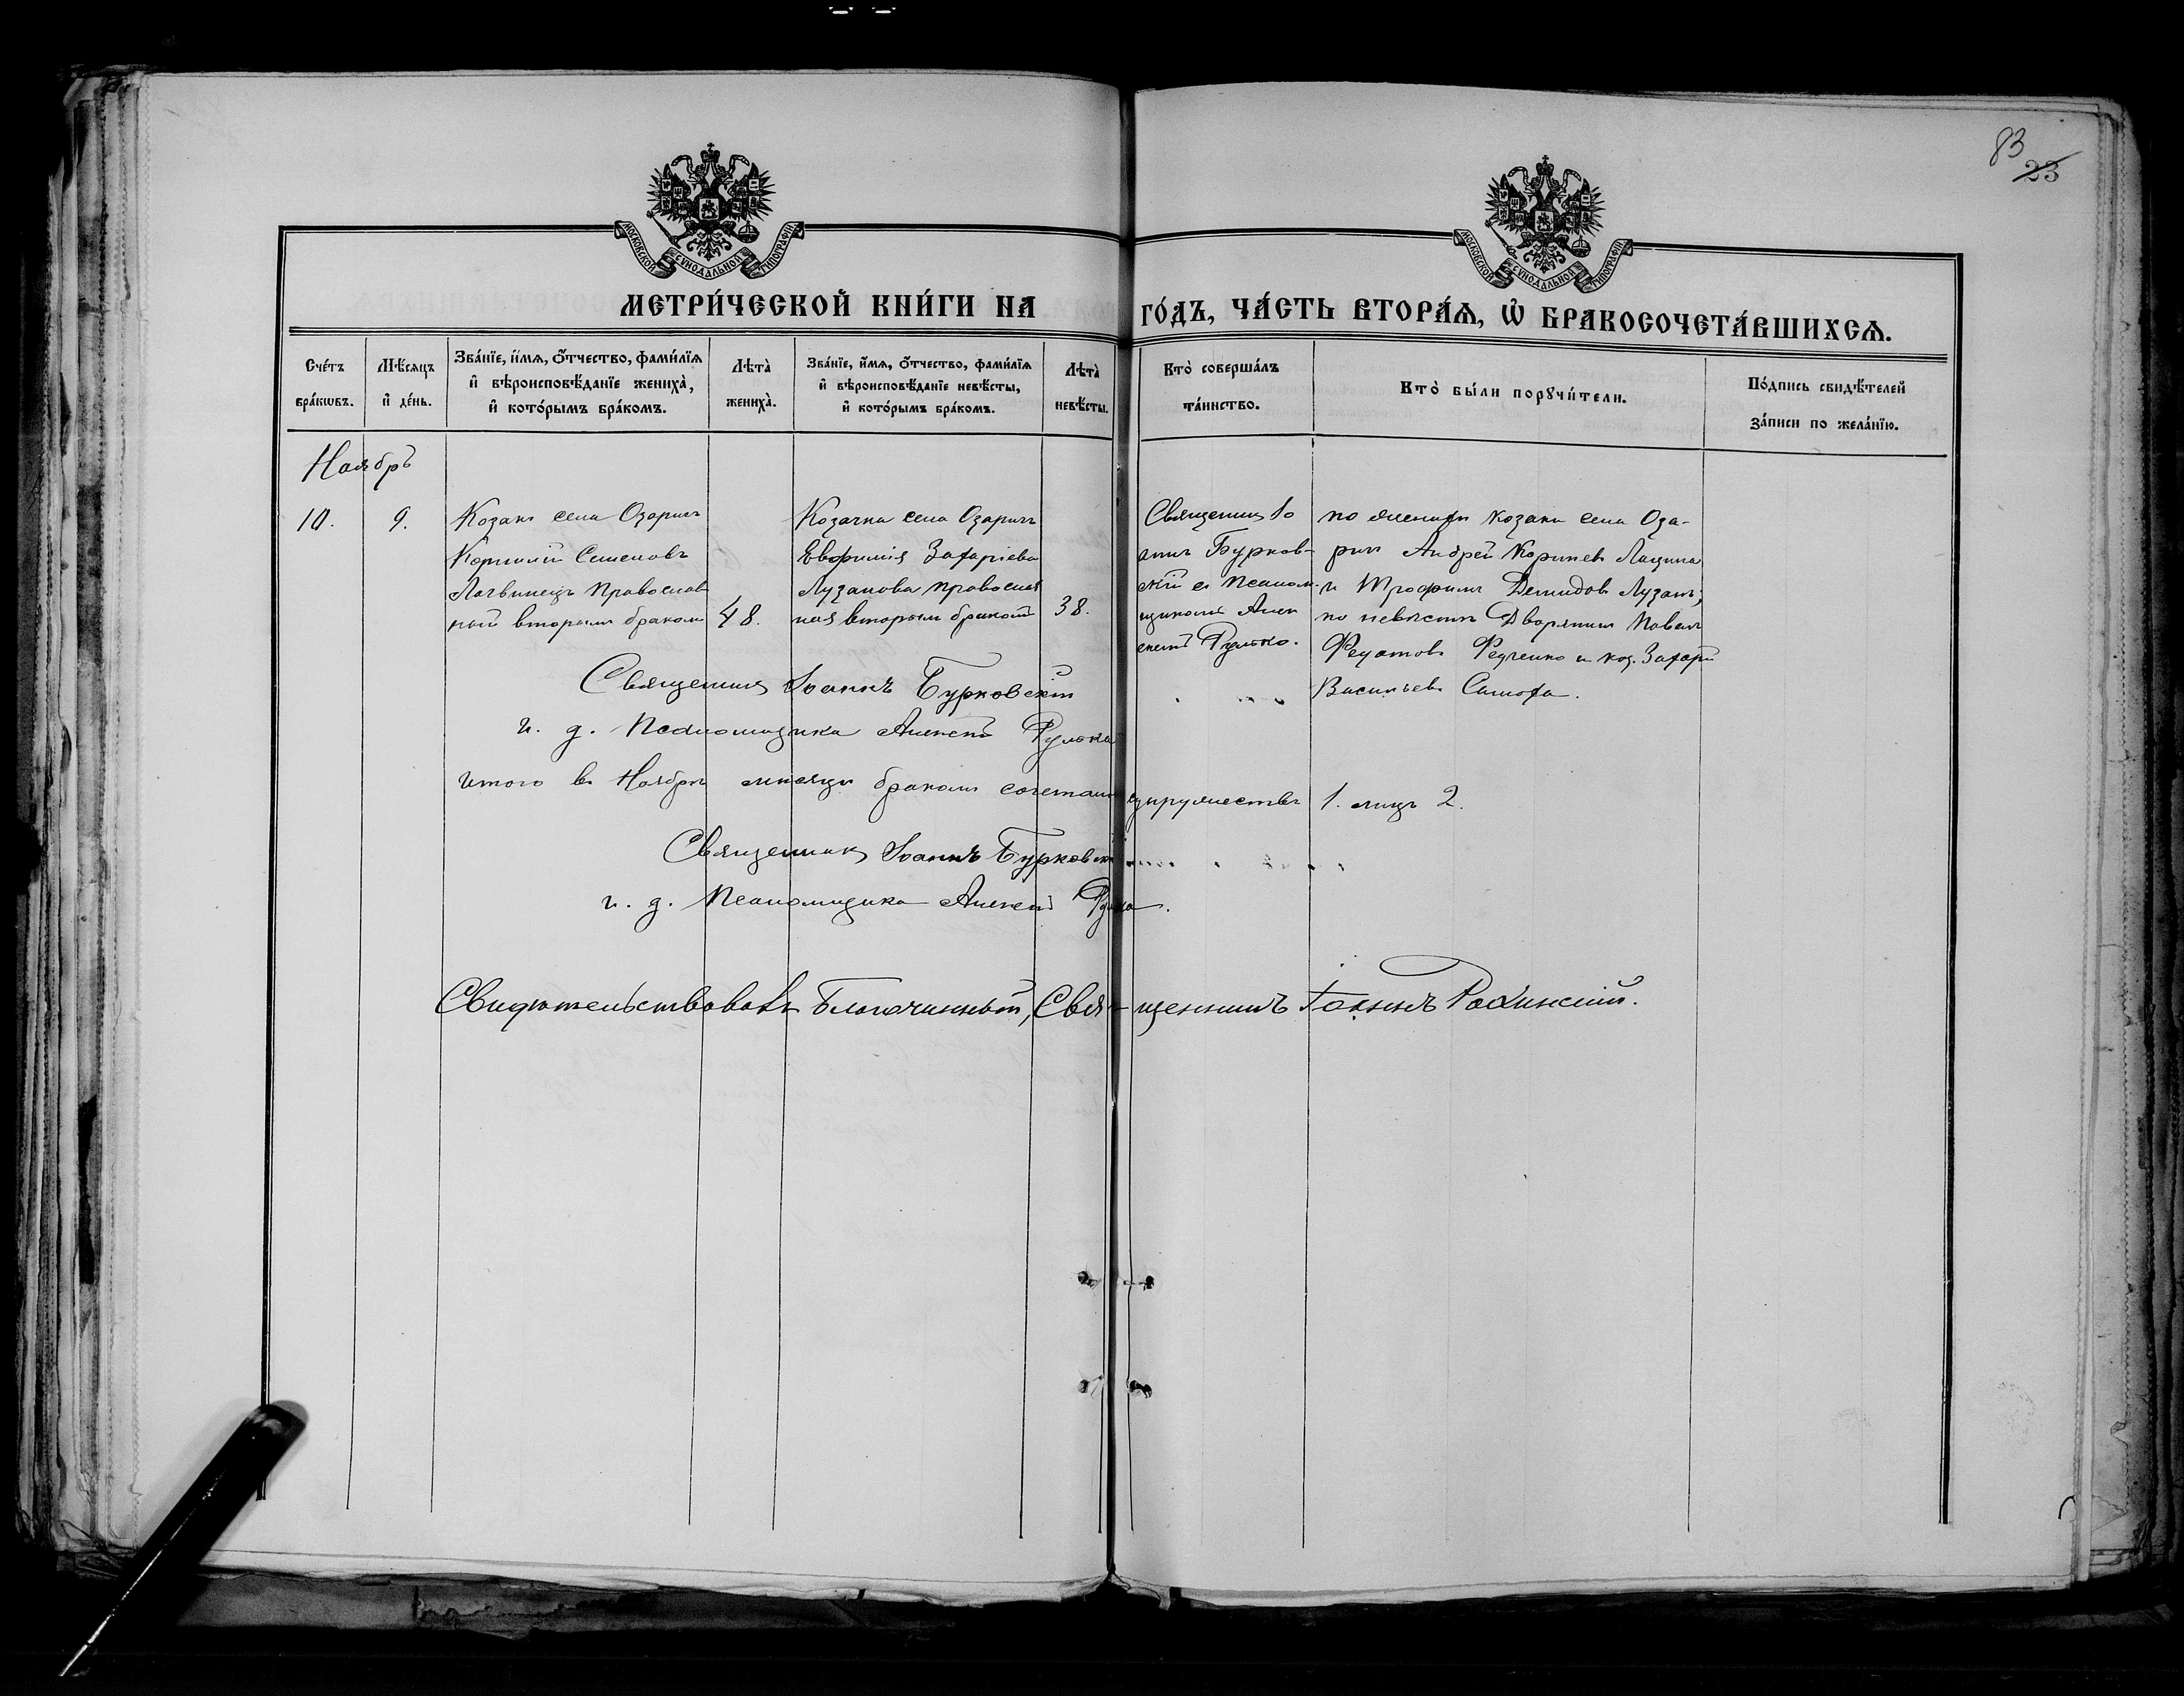 83
23
МОСКОВСКОЙ СѴНОДАЛЬНОЙ ТИПОГРАФІИ
МОСКОВСКОЙ СѴНОДАЛЬНОЙ ТИПОГРАФІИ
МЕТРИ́ЧЕСКОЙ КНИ́ГИ НА ГО́ДЪ, ЧА́СТЬ ВТОРА́Ѧ, Ѡ҆ БРАКОСОЧЕТА́ВШИХСѦ.
Сче́тъ
бра́кѡвъ.
Мѣ́сяцъ
и҆ де́нь.
Зва́нїе, и҆́мѧ, ѻ҆́тчество, фами́лїѧ
и҆ вѣроисповѣ́данїе жениха̀,
и҆ кото́рымъ бра́комъ.
Лѣта̀
жениха̀.
Зва́нїе, и҆́мѧ, ѻ҆́тчество, фами́лїѧ
и҆ вѣроисповѣ́данїе невѣ́сты,
и҆ кото́рымъ бра́комъ.
Лѣта̀
невѣ́сты.
Кто̀ соверша́лъ
та́инство.
Кто̀ бы́ли порꙋчи́тели.
По́дпись свидѣ́телей
за́писи по жела́нїю.
Ноябрь
10.
9.
Козакъ села Озаричъ
Корнилій Семеновъ
Логвинецъ православ
ный вторымъ бракомъ
48.
Козачка села Озаричъ
Евфимія Захаріева
Лузанова православ
ная вторымъ бракомъ
38.
Священникъ Іо
аннъ Бурков-
скій съ псалом-
щикомъ Алек
сѣемъ Рулько.
по женихѣ козаки села Оза-
ричъ Андрей Корнѣевъ Лащина
и Трофимъ Демидовъ Лузанъ;
по невѣстѣ Дворянинъ Павелъ
Федотовъ Федченко и коз. Захарій
Васильевъ Самоха.
Священникъ Іоаннъ Бурковскій
и. д. Псаломщика Алексѣй Рулько
Итого въ Ноябрѣ мѣсяцѣ бракомъ сочетано супружествъ 1. лицъ 2.
Священникъ Іоаннъ Бурковскій
и. д. Псаломщика Алексѣй Рулько.
Свидѣтельствовалъ Благочинный, Свя-щенникъ Іоаннъ Робинскій.